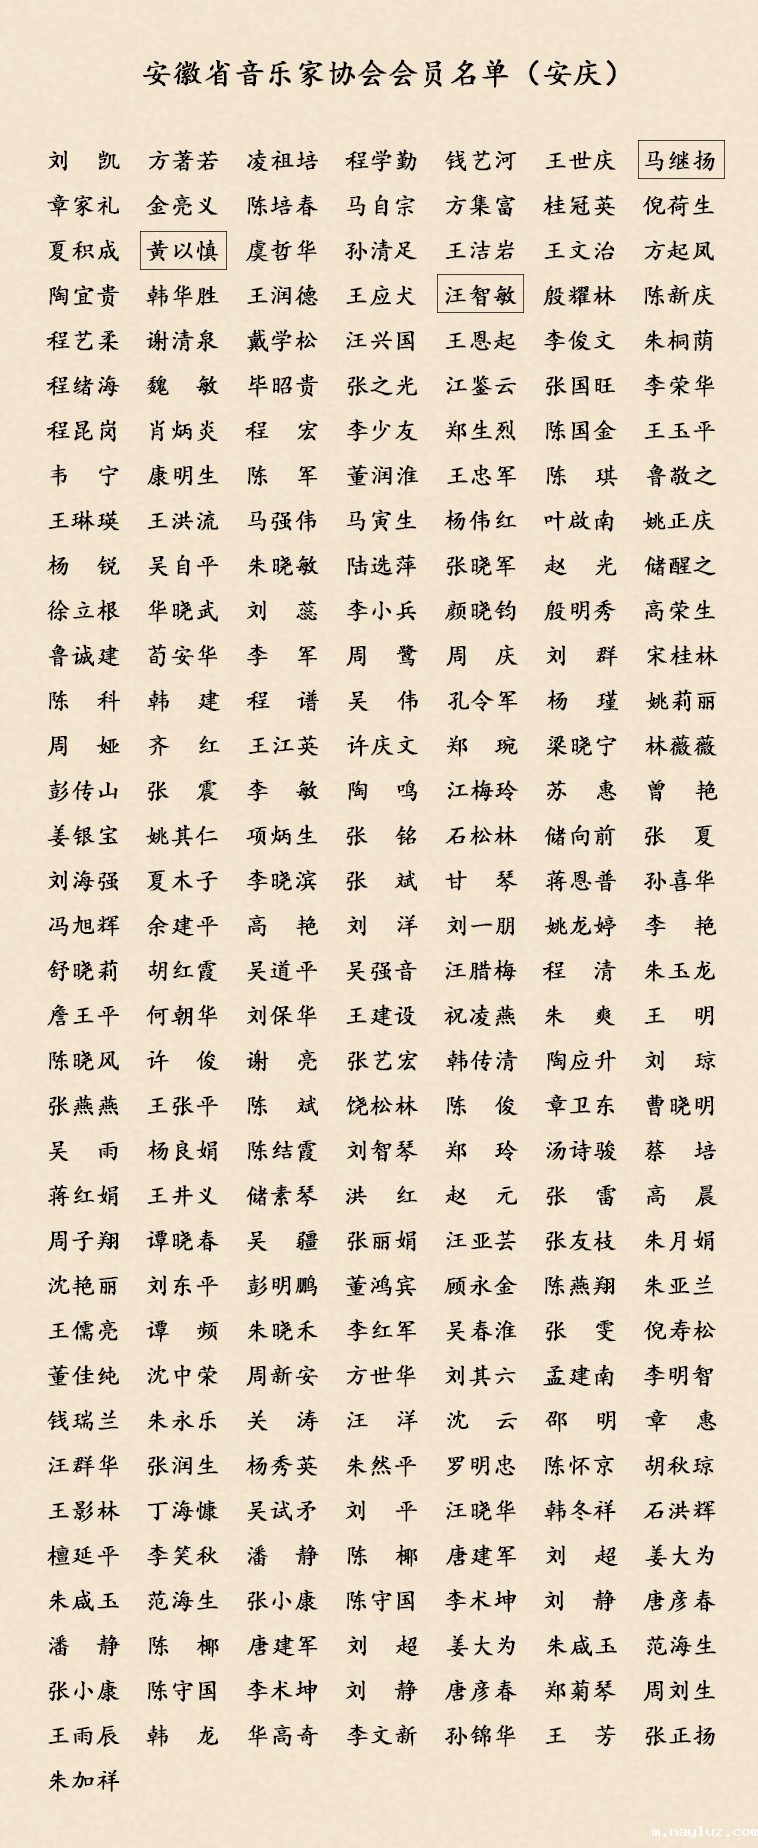 安徽省音乐家协会会员名单（安庆）
刘　凯 方著若 凌祖培 程学勤 钱艺河 王世庆 马继扬
章家礼 金亮义 陈培春 马自宗 方集富 桂冠英 倪荷生
夏积成 黄以慎 虞哲华 孙清足 王洁岩 王文治 方起凤
陶宜贵 韩华胜 王润德 王应犬 汪智敏 殷耀林 陈新庆
程艺柔 谢清泉 戴学松 汪兴国 王恩起 李俊文 朱桐荫
程绪海 魏　敏 毕昭贵 张之光 江鉴云 张国旺 李荣华
程昆岗 肖炳炎 程　宏 李少友 郑生烈 陈国金 王玉平
韦　宁 康明生 陈　军 董润淮 王忠军 陈　琪 鲁敬之
王琳瑛 王洪流 马强伟 马寅生 杨伟红 叶啟南 姚正庆
杨　锐 吴自平 朱晓敏 陆选萍 张晓军 赵　光 储醒之
徐立根 华晓武 刘　蕊 李小兵 颜晓钧 殷明秀 高荣生
鲁诚建 荀安华 李　军 周　鹭 周　庆 刘　群 宋桂林
陈　科 韩　建 程　谱 吴　伟 孔令军 杨　瑾 姚莉丽
周　娅 齐　红 王江英 许庆文 郑　琬 梁晓宁 林薇薇
彭传山 张　震 李　敏 陶　鸣 江梅玲 苏　惠 曾　艳
姜银宝 姚其仁 项炳生 张　铭 石松林 储向前 张　夏
刘海强 夏木子 李晓滨 张　斌 甘　琴 蒋恩普 孙喜华
冯旭辉 余建平 高　艳 刘　洋 刘一朋 姚龙婷 李　艳
舒晓莉 胡红霞 吴道平 吴强音 汪腊梅 程　清 朱玉龙
詹王平 何朝华 刘保华 王建设 祝凌燕 朱　爽 王　明
陈晓风 许　俊 谢　亮 张艺宏 韩传清 陶应升 刘　琼
张燕燕 王张平 陈　斌 饶松林 陈　俊 章卫东 曹晓明
吴　雨 杨良娟 陈结霞 刘智琴 郑　玲 汤诗骏 蔡　培
蒋红娟 王井义 储素琴 洪　红 赵　元 张　雷 高　晨
周子翔 谭晓春 吴　疆 张丽娟 汪亚芸 张友枝 朱月娟
沈艳丽 刘东平 彭明鹏 董鸿宾 顾永金 陈燕翔 朱亚兰
王儒亮 谭　频 朱晓禾 李红军 吴春淮 张　雯 倪寿松
董佳纯 沈中荣 周新安 方世华 刘其六 孟建南 李明智
钱瑞兰 朱永乐 关　涛 汪　洋 沈　云 邵　明 章　惠
汪群华 张润生 杨秀英 朱然平 罗明忠 陈怀京 胡秋琼
王影林 丁海慷 吴试矛 刘　平 汪晓华 韩冬祥 石洪辉
檀延平 李笑秋 潘　静 陈　椰 唐建军 刘　超 姜大为
朱戚玉 范海生 张小康 陈守国 李术坤 刘　静 唐彦春
潘　静 陈　椰 唐建军 刘　超 姜大为 朱戚玉 范海生
张小康 陈守国 李术坤 刘　静 唐彦春 郑菊琴 周刘生
王雨辰 韩　龙 华高奇 李文新 孙锦华 王　芳 张正扬
朱加祥
m.nayluz.com